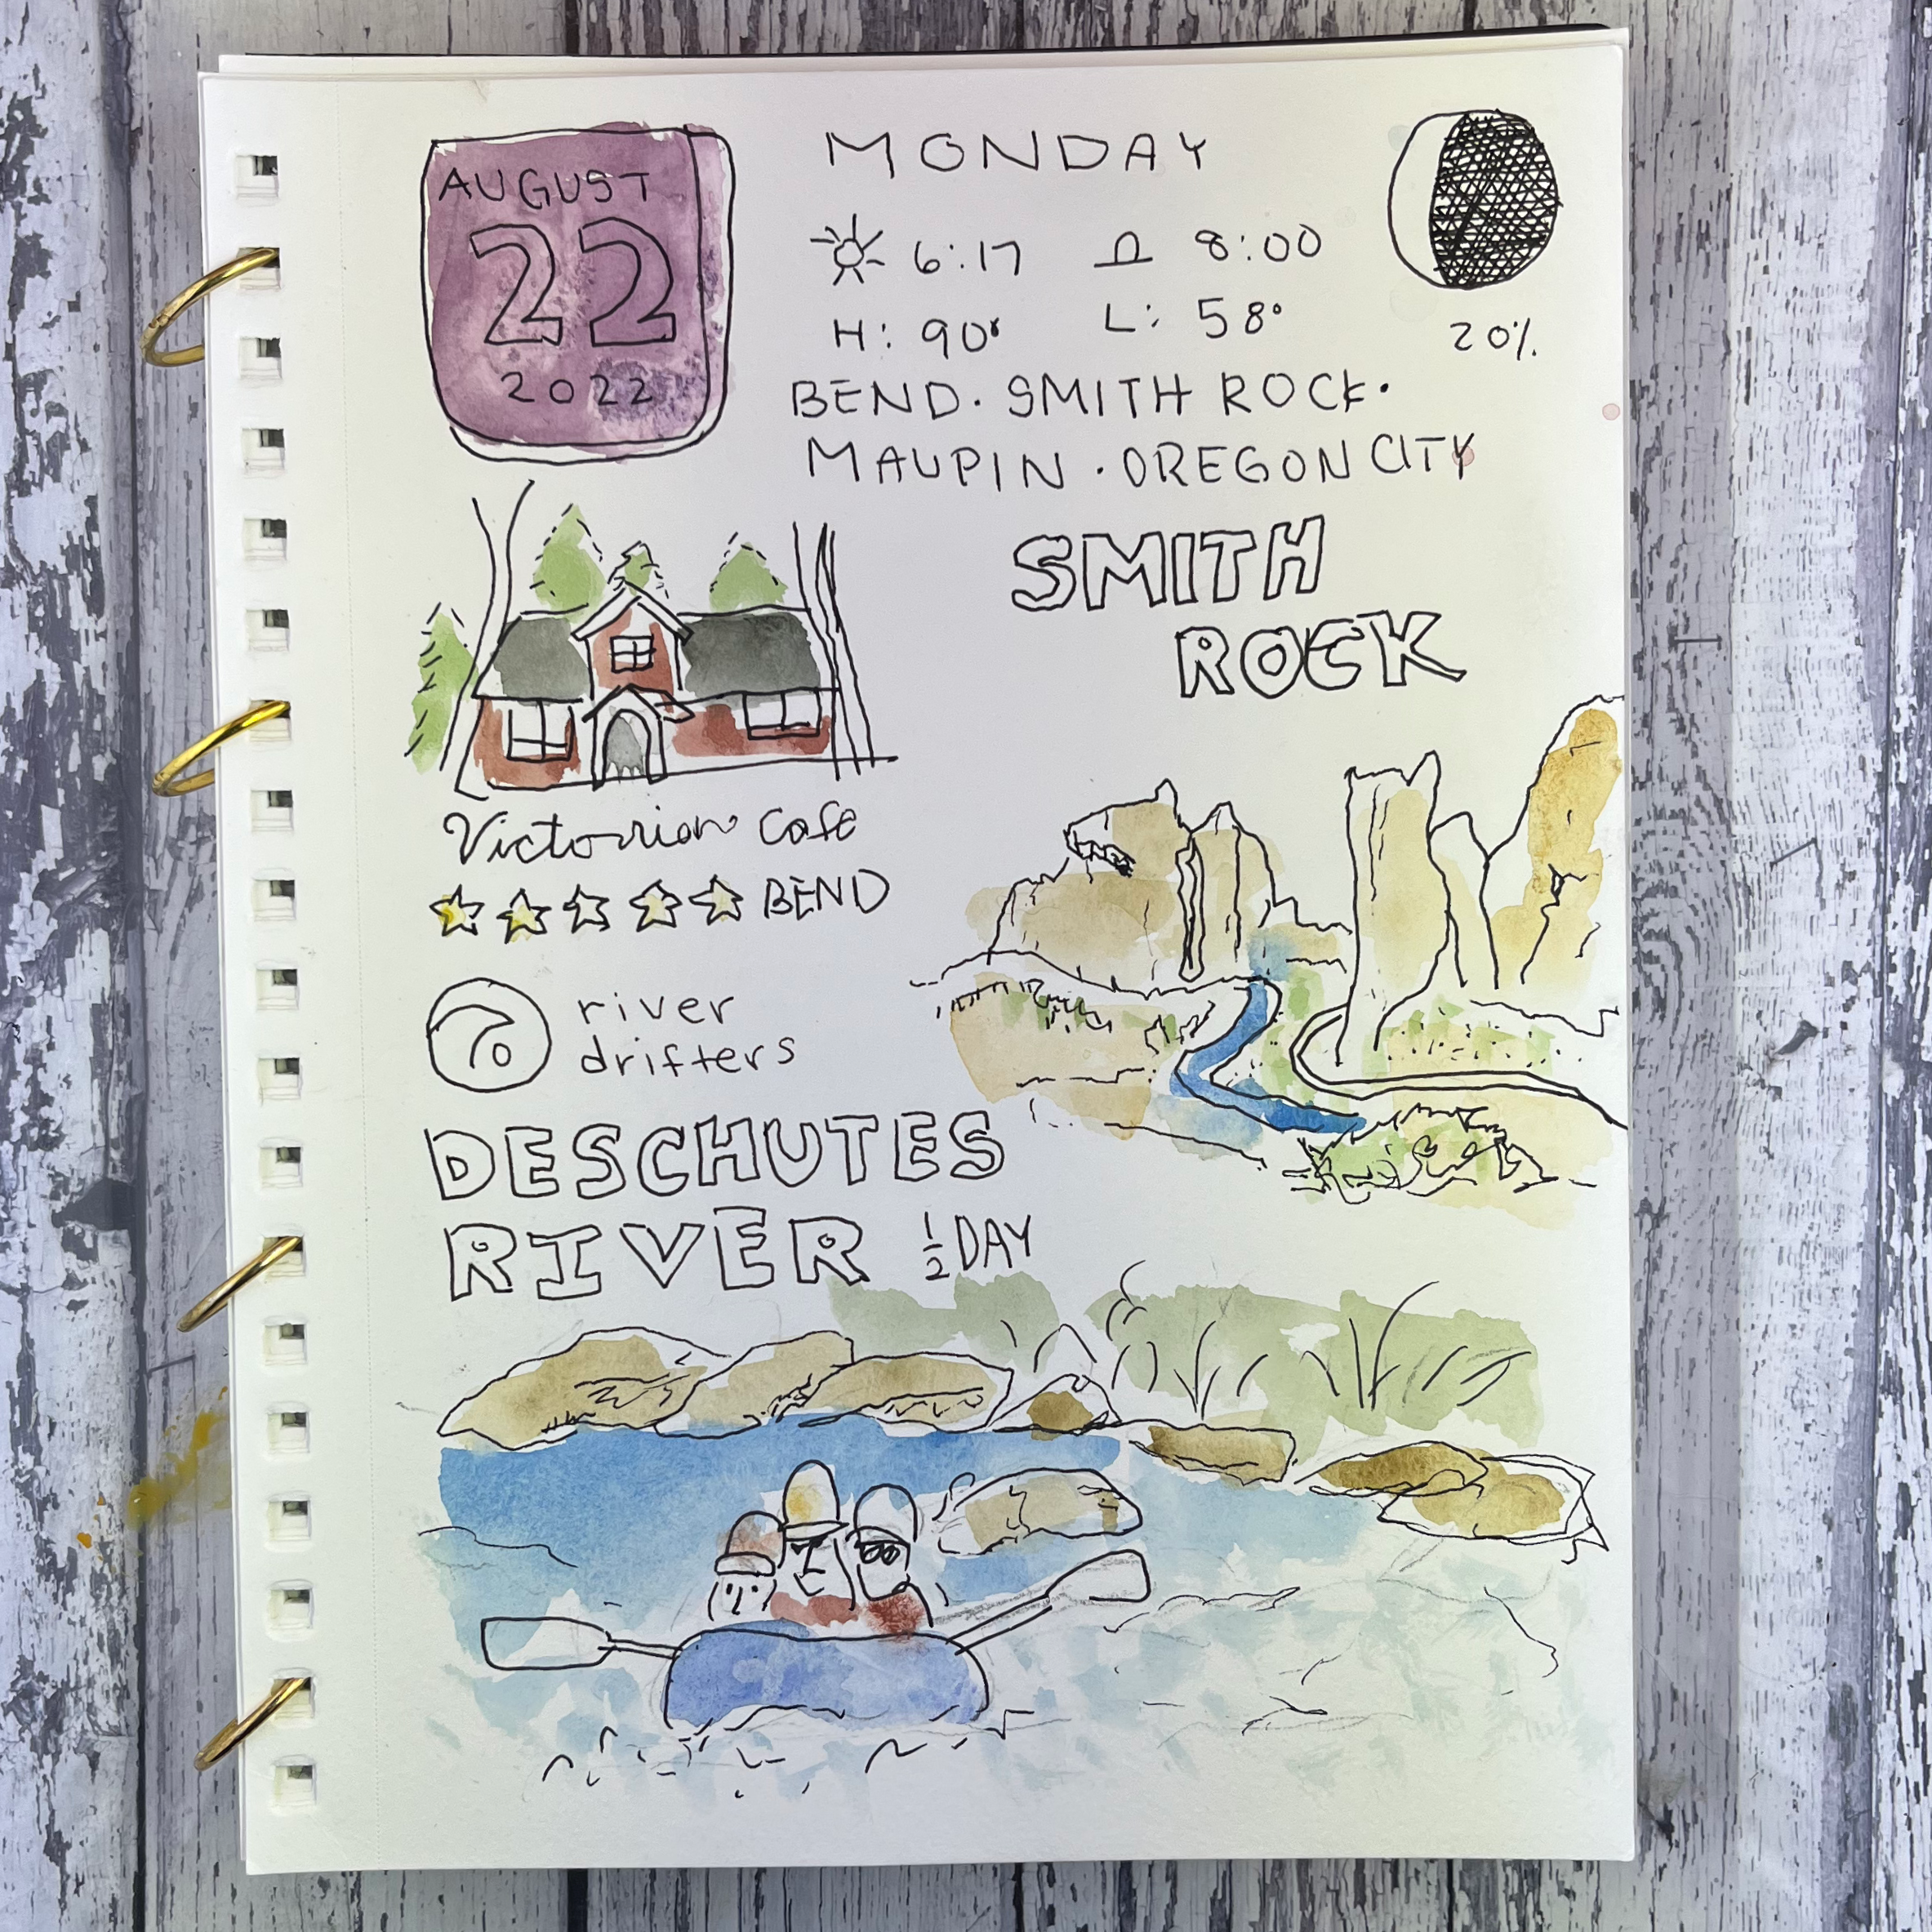 AUGUST
22
2022
MONDAY
6:17 8:00
H: 90° L: 58°
20%
BEND. SMITH ROCK.
MAUPIN . OREGON CITY
SMITH
ROCK
Victorian Cafe
BEND
river
drifters
DESCHUTES
RIVER 1/2 DAY